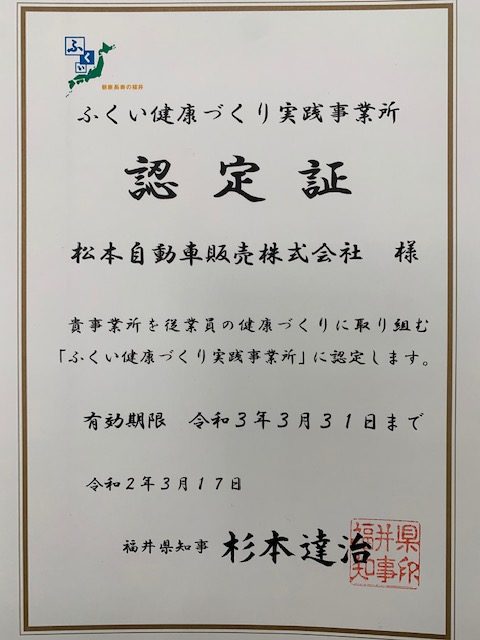 ふくい
健康長寿の福井
ふくい健康づくり実践事業所
認定証
松本自動車販売株式会社　様
貴事業所を従業員の健康づくりに取り組む
「ふくい健康づくり実践事業所」に認定します。
有効期限　令和３年３月３１日まで
令和２年３月１７日
福井県知事　杉本達治
福井県
知事印